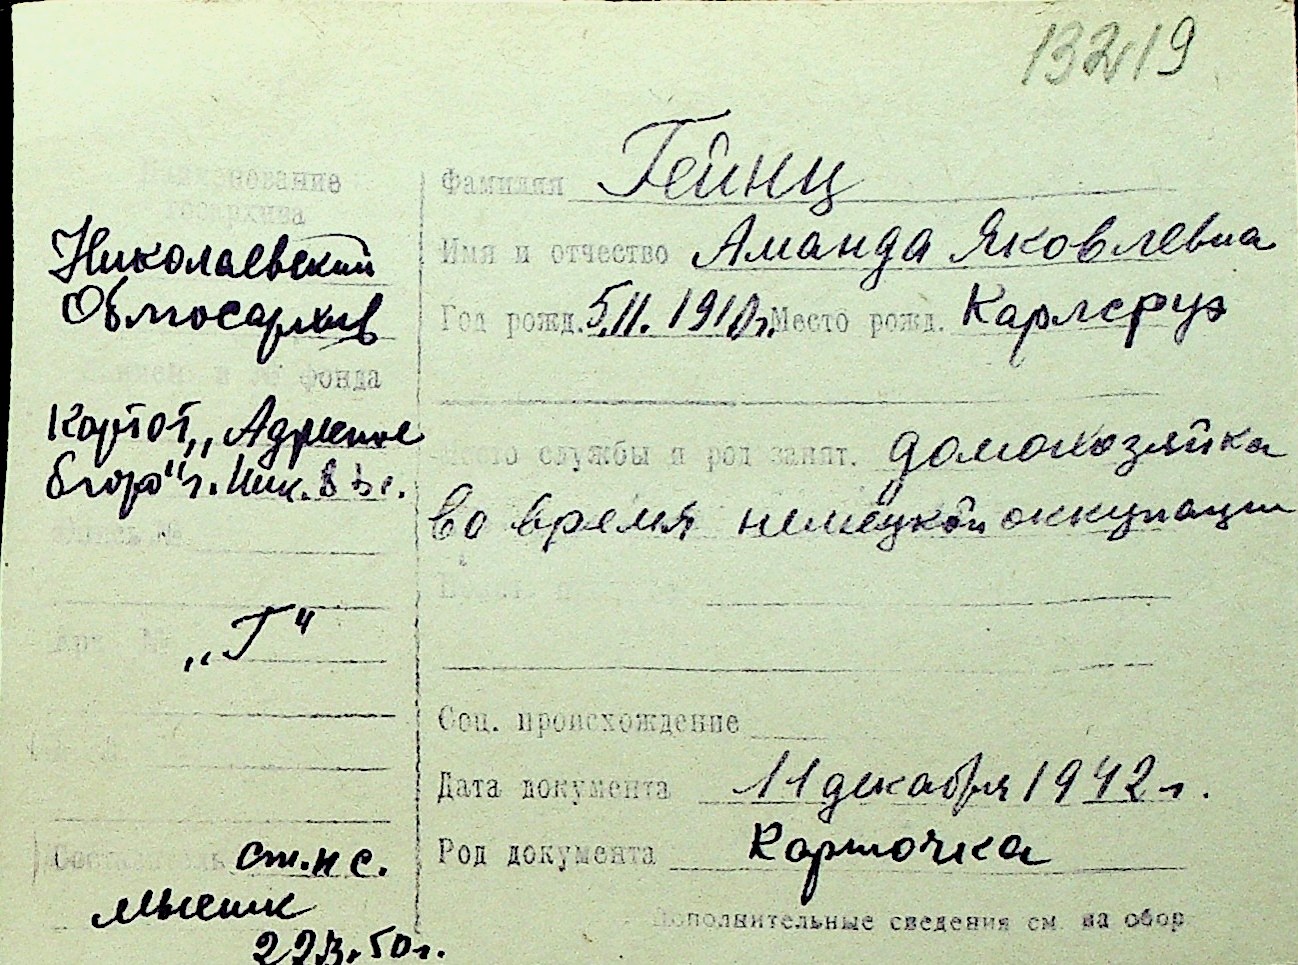 13219
Наименование
госархива
Николаевский
Облгосархив
и № фонда
Картот. „Адресное
бюро" г. Ник.
Опись №
„Г"
Арх. №
Составитель ст. н. с.
50 г.
Фамилия Гейнц
Имя и отчество Аманда Яковлевна
Год рожд. 5.II.1910 г. Место рожд. Карлсруэ
Место службы и род занят. домохозяйка
во время немецкой оккупации
Соц. происхождение
Дата документа 11 декабря 1942 г.
Род документа Карточка
Дополнительные сведения см. на обор